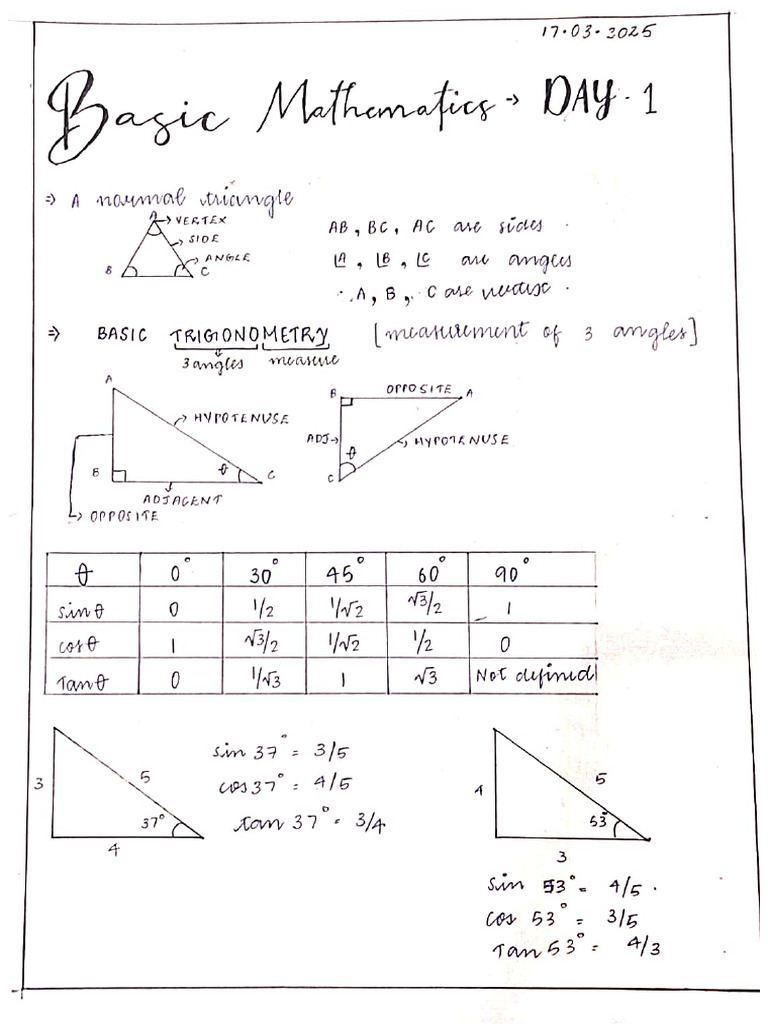 17.03.2025
Basic Mathematics → DAY - 1
⇒ A normal triangle
A → VERTEX
→ SIDE
→ ANGLE
B C
AB, BC, AC are sides.
∠A, ∠B, ∠C are angles
∴ A, B, C are vertex.
⇒ BASIC TRIGIONOMETRY [measurement of 3 angles]
3 angles measure
A
→ HYPOTENUSE
B θ C
ADJAGENT
→ OPPOSITE
B OPPOSITE A
ADJ →
→ HYPOTENUSE
θ
C
θ 0° 30° 45° 60° 90°
sinθ 0 1/2 1/√2 √3/2 1
cosθ 1 √3/2 1/√2 1/2 0
Tanθ 0 1/√3 1 √3 Not defined
3 5
37°
4
sin 37° = 3/5
cos 37° = 4/5
tan 37° = 3/4
4 5
53°
3
sin 53° = 4/5.
cos 53° = 3/5
Tan 53° = 4/3